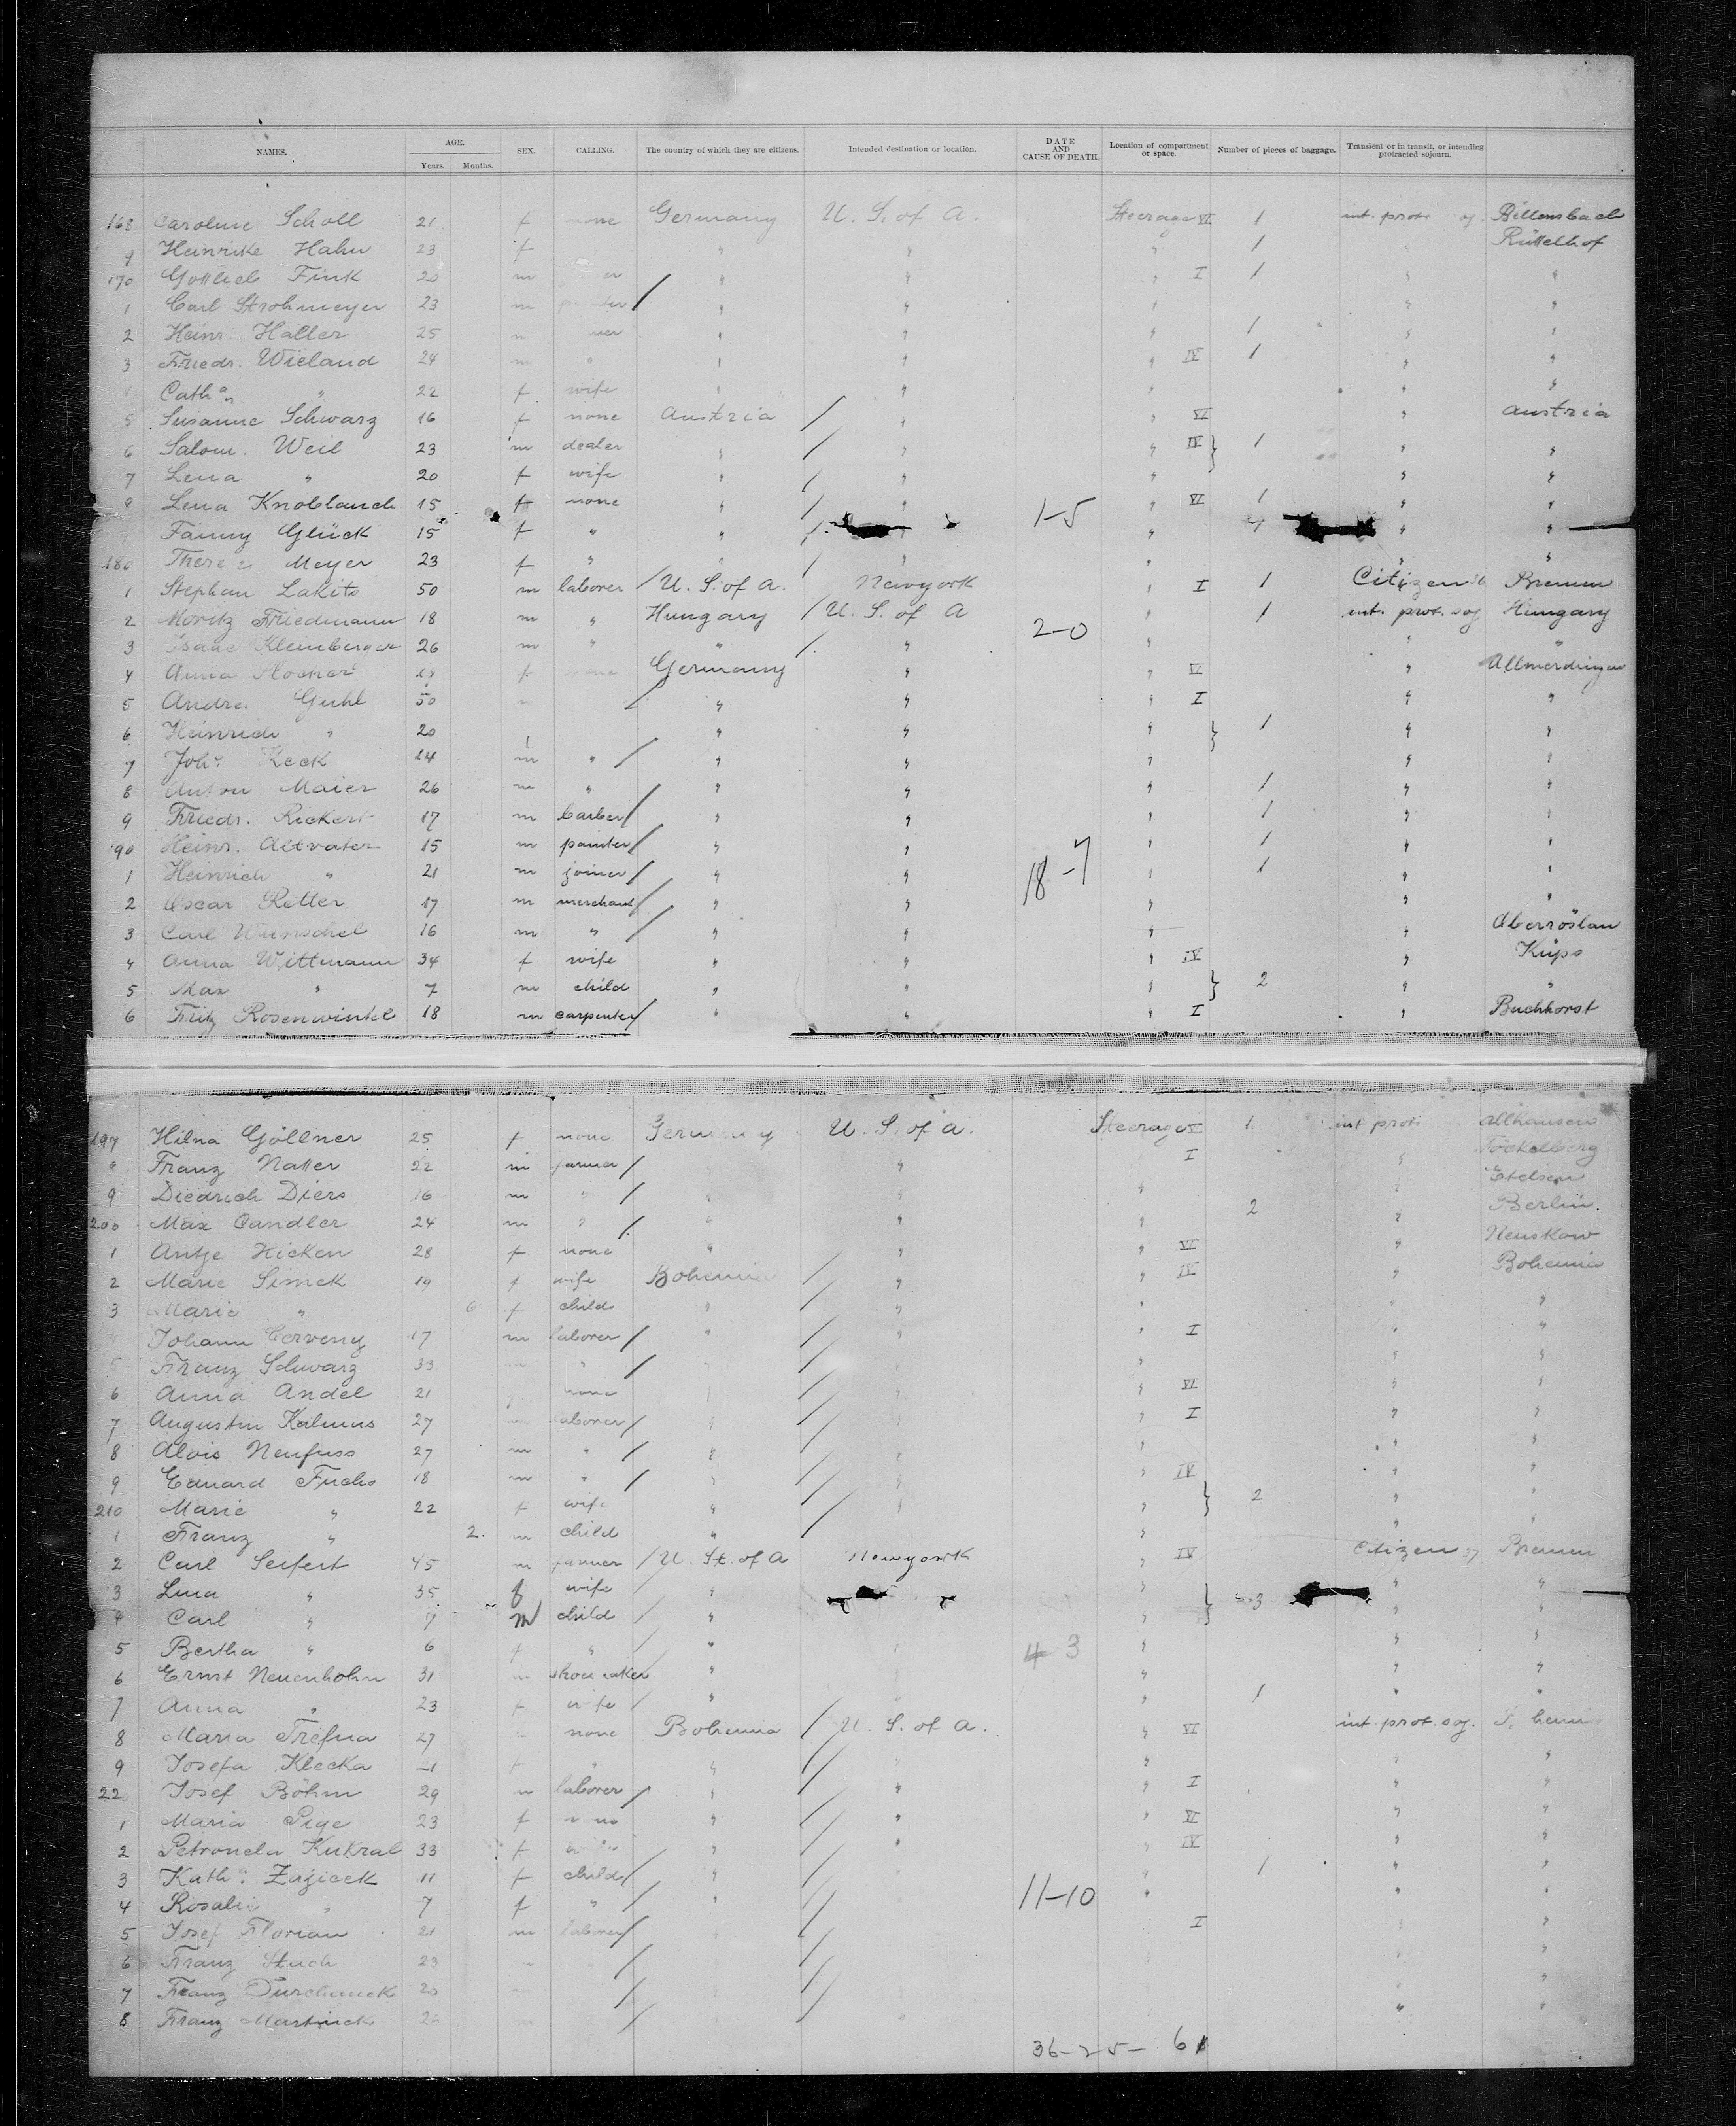 NAMES. AGE. Years. Months. SEX. CALLING. The country of which they are citizens. Intended destination or location. DATE AND CAUSE OF DEATH. Location of compartment or space. Number of pieces of baggage. Transient or in transit, or intending protracted sojourn.
168 Caroline Scholl 21 f none Germany U. S. of A. Steerage VI 1 int. prot. Billensbach
9 Heinrike Hahn 23 f " " " 1 Rüttelhof
170 Gottlieb Fink 20 m " " " I 1 " "
1 Carl Strohmeyer 23 m painter " " " " "
2 Heinr. Haller 25 m " " " 1 " "
3 Friedr. Wieland 24 m " " " " IV 1 " "
Cath. " 22 f wife " " " " "
5 Susanne Schwarz 16 f none Austria " " VI " Austria
6 Salom. Weil 23 m dealer " " " IV 1 " "
7 Lena " 20 f wife " " " " "
8 Lena Knoblauch 15 f none " " " VI 1 " "
Fanny Glück 15 f " " " 1-5 " 1 " "
180 Meyer 23 f " " " " " "
1 Stephan Lakits 50 m laborer U. S. of A. Newyork " I 1 Citizen Bremen
2 Moritz Friedmann 18 m " Hungary U. S. of A " 1 int. prot. soj Hungary
3 Isaac Kleinberger 26 m " " " 2-0 " " "
4 Anna f Germany " " VI " Allmendingen
5 Andre Guhl 50 m " " " I " "
6 Heinrich " 20 " " " 1 " "
7 Joh. Keck 24 m " " " " " "
8 Anton Maier 26 m " " " " 1 " "
9 Friedr. Rickert 17 m barber " " " 1 " "
190 Heinr. Altvater 15 m painter " " " 1 " "
1 Heinrich " 21 m joiner " " 18-7 " 1 " "
2 Oscar Retter 17 m merchant " " " " "
3 Carl Wunschel 16 m " " " " " Oberröslau
4 Anna Wittmann 34 f wife " " " IV " Küps
5 Max " 7 m child " " " 2 " "
6 Fritz Rosenwinkel 18 m carpenter " " " I " Buchhorst
197 Hilna Göllner 25 f none Germany U. S. of A. Steerage 1 int prot. Allhausen
Franz Natter 22 m farmer " I "
9 Diedrich Diers 16 m " " " " " Etelsen
200 Max Candler 24 m " " " " 2 " Berlin.
1 Antje Hicken 28 f none " " " VI " Neuskow
2 Marie Simek 19 f wife Bohemia " " IV " Bohemia
3 Marie " 6 f child " " " " "
Johann Cerveny 17 m laborer " " " I " "
5 Franz Schwarz 33 " " " "
6 Anna Andel 21 none " VI " "
7 Augustin Kalmus 27 laborer " " I " "
8 Alois Neufuss 27 m " " " " " "
9 Eduard Fuchs 18 m " " " " IV " "
210 Marie " 22 f wife " " " 2 " "
1 Franz " 2. m child " " " "
2 Carl Seifert 45 m farmer U. St. of A Newyork " IV Citizen Bremen
3 Lina " 35 f wife " " 3 " "
4 Carl " 7 m child " " " "
5 Bertha " 6 f " " " 4-3 " " "
6 Ernst Neuenhohn 31 m shoemaker " " " "
7 Anna " 23 f wife " " 1 " "
8 Maria Trefna 27 none Bohemia U. S. of A. " VI int. prot. soj.
9 Josefa Klecka f " " " " "
22 Josef Böhm 29 m laborer " " " I " "
1 Maria Pige 23 f " " " VI " "
2 Petronela Kukral 33 f " " " IV " "
3 Kath. Zajicek 11 f child " " " 1 " "
4 Rosalie " 7 f " " 11-10 " " "
5 Josef Florian 21 m laborer " I " "
6 Franz Stuch 23 "
7 Franz 20 "
8 Franz Martinek " "
36-25- 61